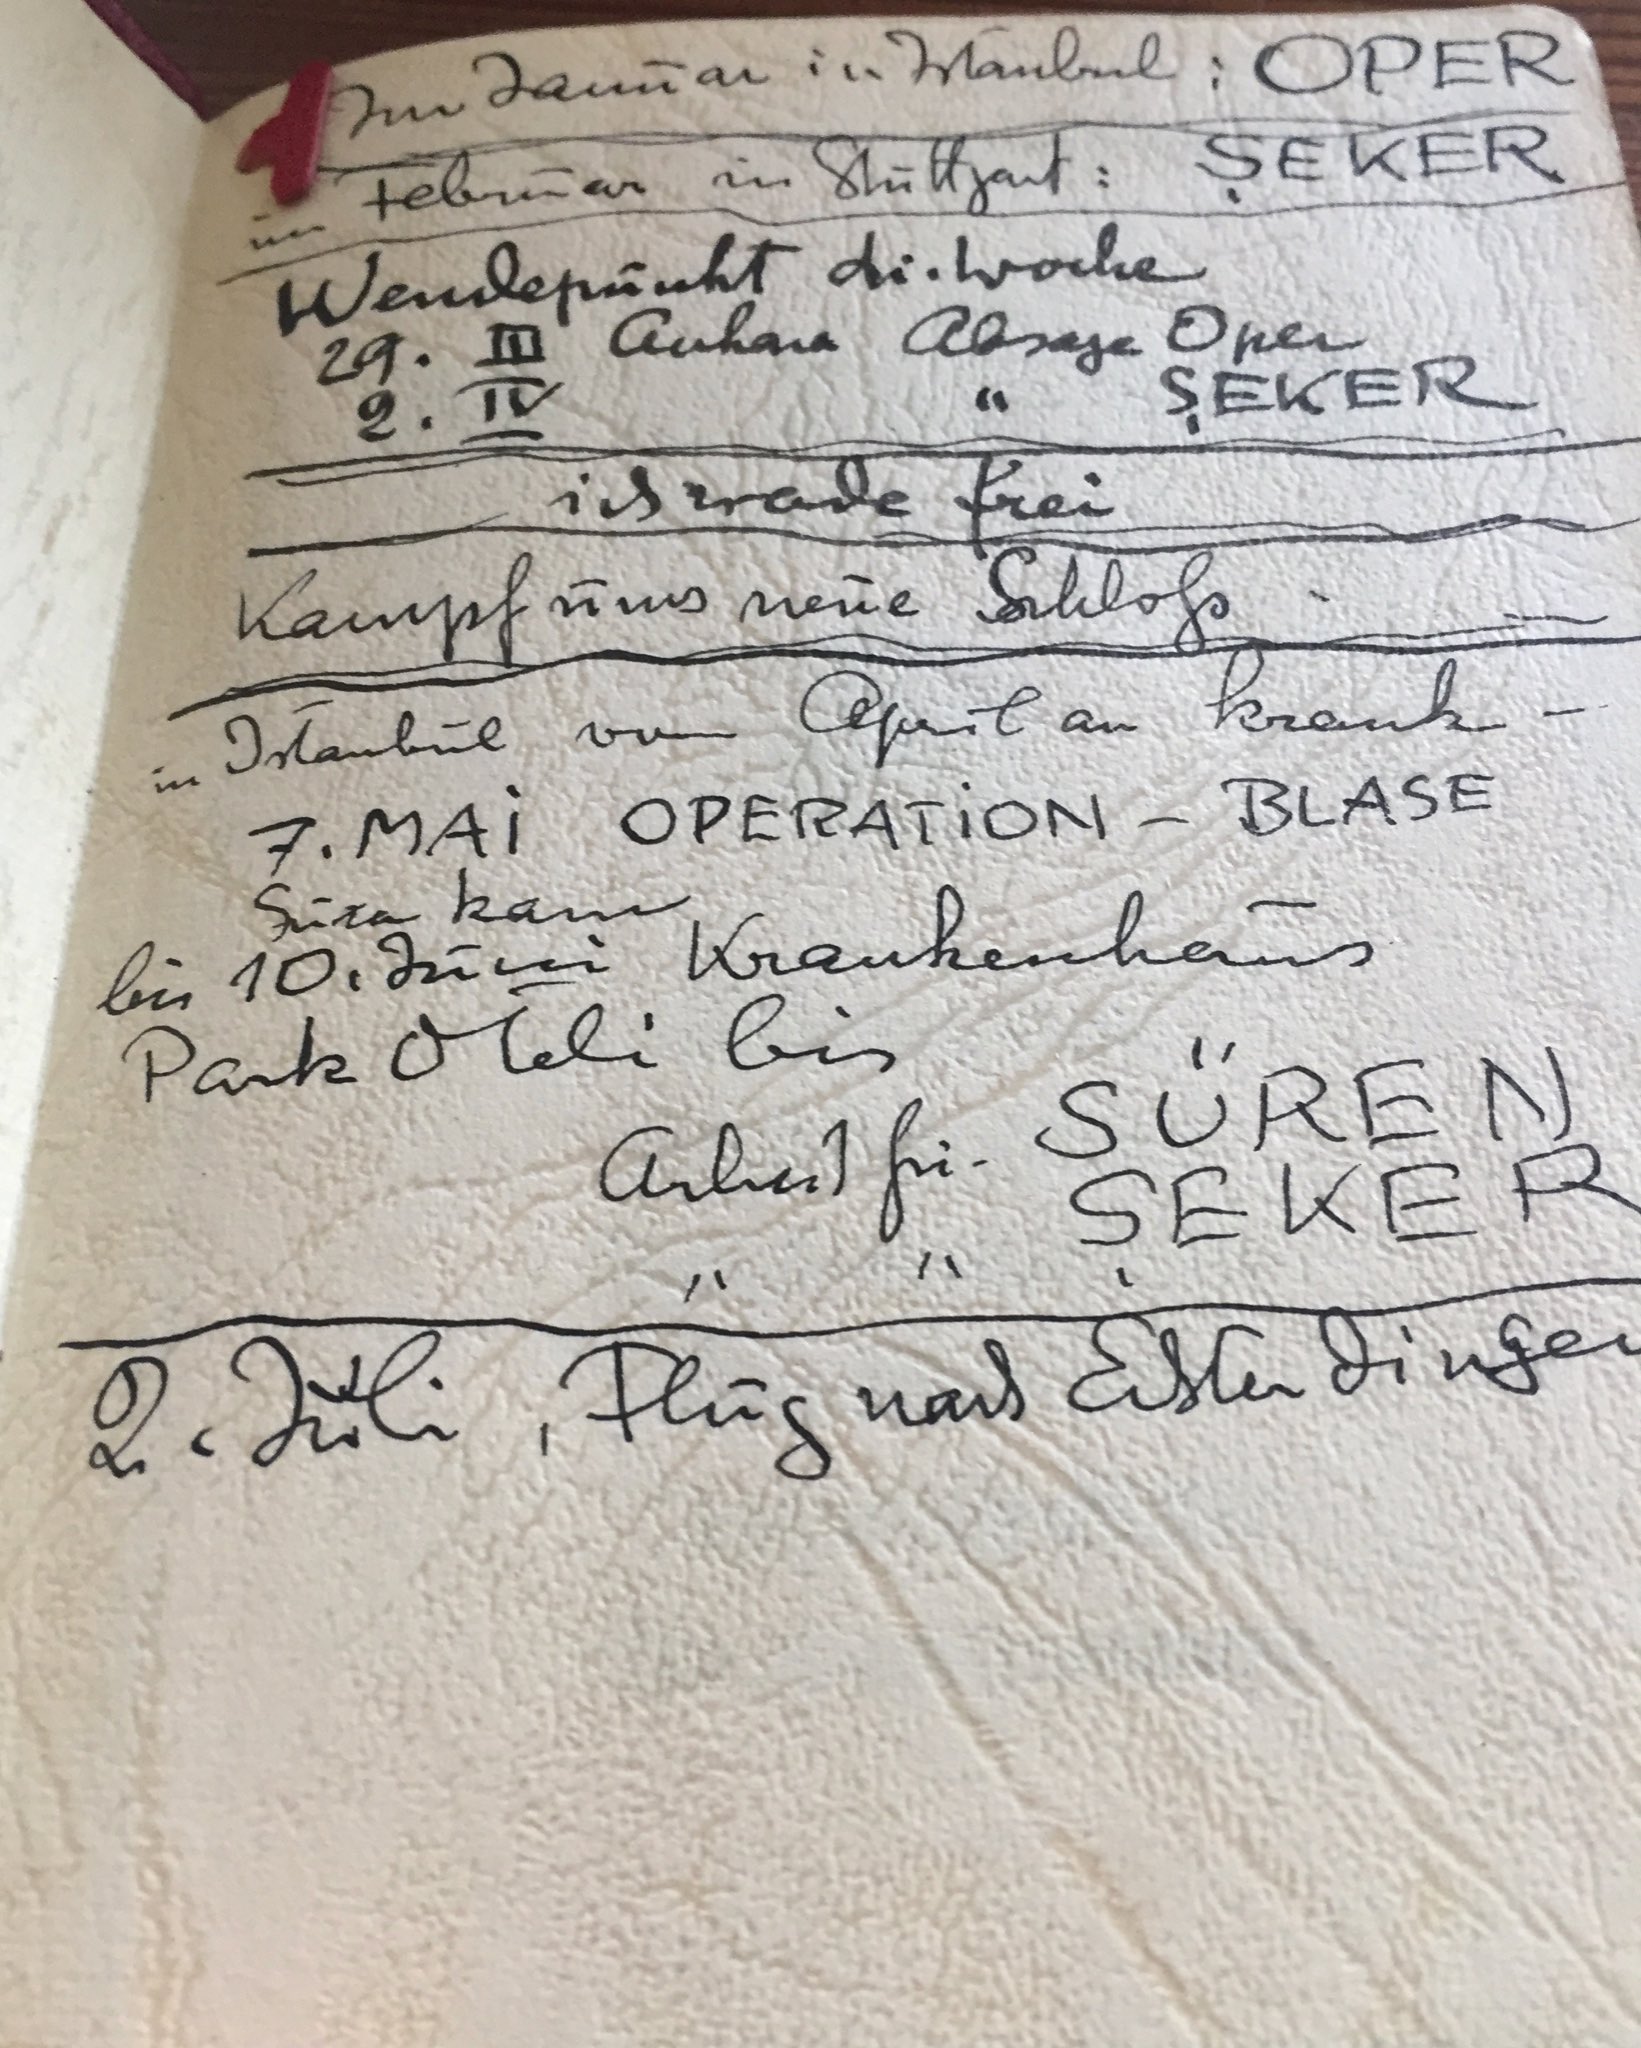 Im Januar in Istanbul : OPER
im Februar in Stuttgart : ŞEKER
Wendepunkt di. Woche
29. III Ankara Absage Oper
2. IV " ŞEKER
ich werde frei
Kampf ums neue Schloß
in Istanbul von April an krank -
7. MAi OPERATiON - BLASE
kam
bis 10. Juni Krankenhaus
Park Oteli bis
Arbeit für SÜREN
" " ŞEKER
2. Juli, Flug nach Echterdingen